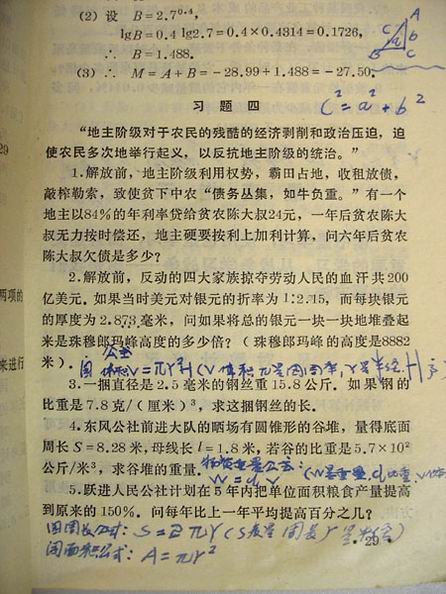 (2) 设 B=2.7⁰·⁴,
lgB=0.4 lg2.7=0.4×0.4314=0.1726,
∴ B=1.488.
(3) ∴ M=A+B=-28.99+1.488=-27.50.
A
c b
a
B C
习题四
c²=a²+b²
“地主阶级对于农民的残酷的经济剥削和政治压迫，迫
使农民多次地举行起义，以反抗地主阶级的统治。”
29
1.解放前，地主阶级利用权势，霸田占地，收租放债，
敲榨勒索，致使贫下中农“债务丛集，如牛负重。”有一个
地主以84%的年利率贷给贫农陈大叔24元，一年后贫农陈大
叔无力按时偿还，地主硬要按利上加利计算，问六年后贫农
陈大叔欠债是多少？
2.解放前，反动的四大家族掠夺劳动人民的血汗共200
两项的
亿美元，如果当时美元对银元的折率为1:2.15，而每块银元
的厚度为2.873毫米，问如果将总的银元一块一块地堆叠起
来是珠穆郎玛峰高度的多少倍？（珠穆郎玛峰的高度是8882
来进行
米）.
公式
V=πr²H
3.一捆直径是2.5毫米的钢丝重15.8公斤．如果钢的
比重是7.8克/（厘米）³，求这捆钢丝的长．
4.东风公社前进大队的晒场有圆锥形的谷堆，量得底面
周长S=8.28米，母线长l=1.8米，若谷的比重是5.7×10²
公斤/米³，求谷堆的重量．
公式: (W是重量, d比重,
W=dv
5.跃进人民公社计划在5年内把单位面积粮食产量提高
到原来的150%．问每年比上一年平均提高百分之几？
圆周长公式: S=2πr (S
29
圆面积公式: A=πr²